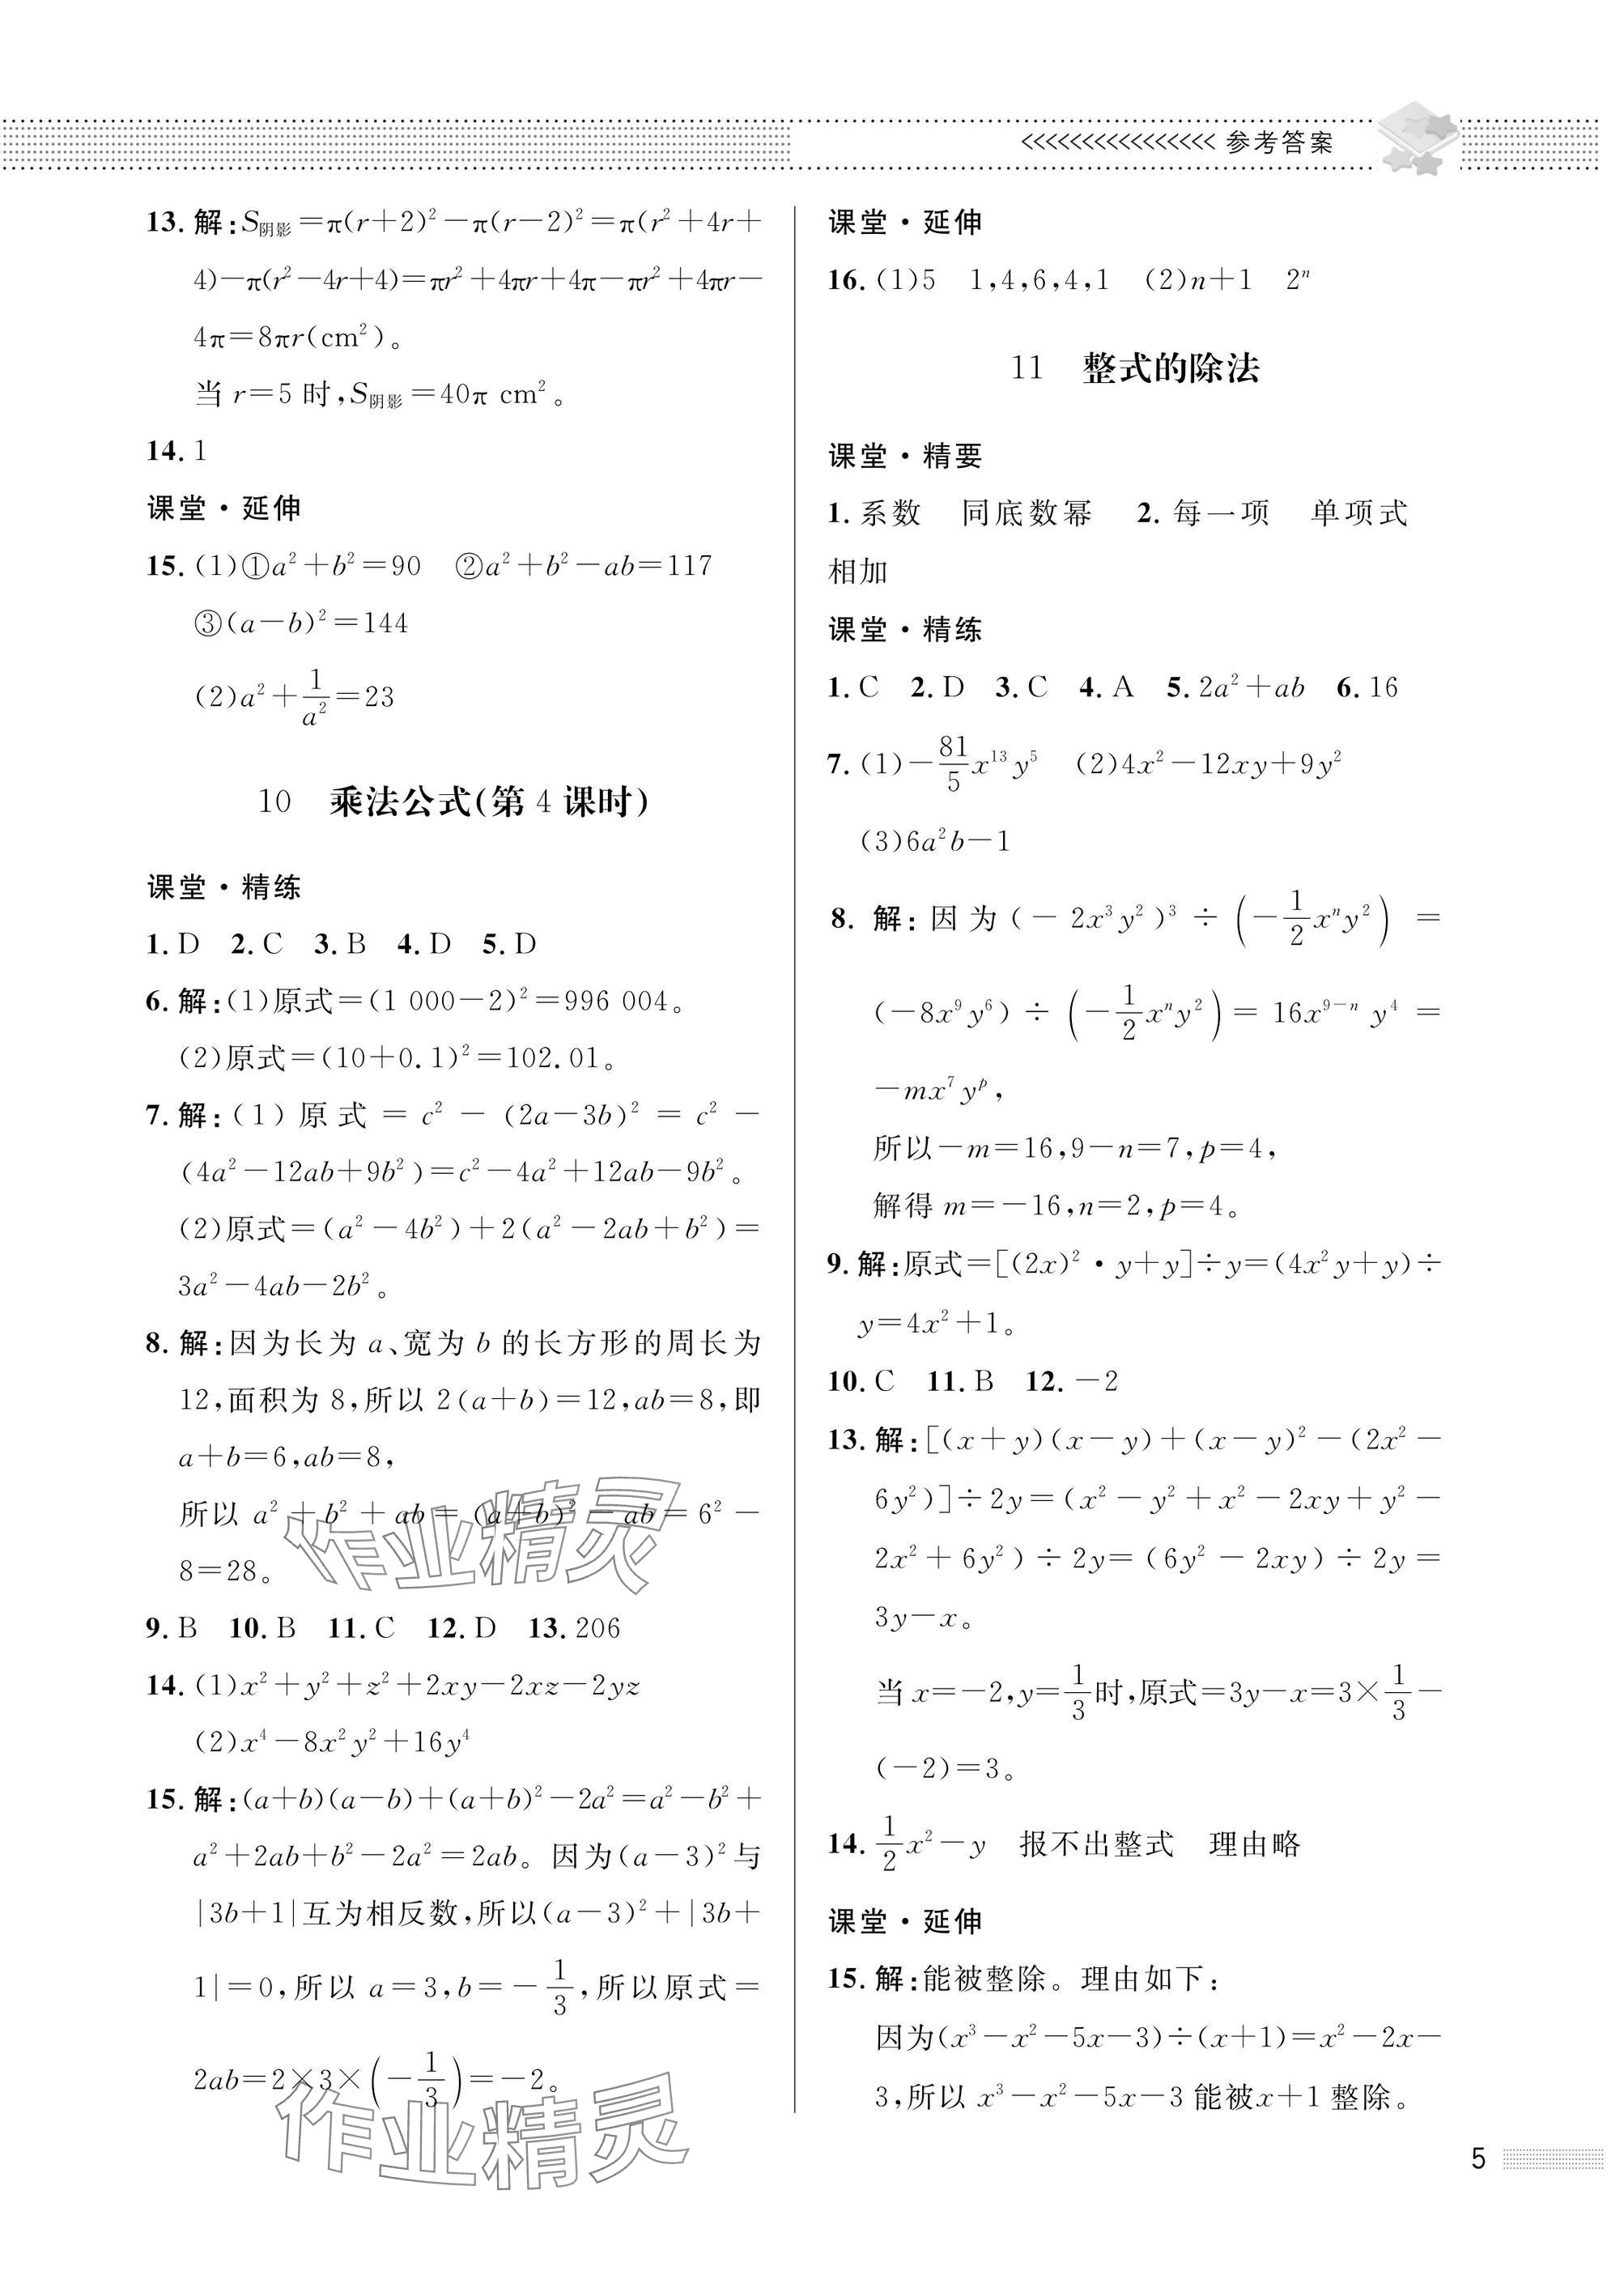 <<<<<<<<<<<<<<<< 参考答案
13. 解:S阴影=π(r+2)²-π(r-2)²=π(r²+4r+
4)-π(r²-4r+4)=πr²+4πr+4π-πr²+4πr-
4π=8πr(cm²)。
当 r=5 时,S阴影=40π cm²。
14. 1
课堂·延伸
15. (1)①a²+b²=90 ②a²+b²-ab=117
③(a-b)²=144
(2)a²+1/a²=23
10 乘法公式(第 4 课时)
课堂·精练
1. D 2. C 3. B 4. D 5. D
6. 解:(1)原式=(1 000-2)²=996 004。
(2)原式=(10+0.1)²=102.01。
7. 解:(1)原式=c²-(2a-3b)²=c²-
(4a²-12ab+9b²)=c²-4a²+12ab-9b²。
(2)原式=(a²-4b²)+2(a²-2ab+b²)=
3a²-4ab-2b²。
8. 解:因为长为 a、宽为 b 的长方形的周长为
12,面积为 8,所以 2(a+b)=12,ab=8,即
a+b=6,ab=8,
所以 a²+b²+ab=(a+b)²-ab=6²-
8=28。
9. B 10. B 11. C 12. D 13. 206
14. (1)x²+y²+z²+2xy-2xz-2yz
(2)x⁴-8x²y²+16y⁴
15. 解:(a+b)(a-b)+(a+b)²-2a²=a²-b²+
a²+2ab+b²-2a²=2ab。因为(a-3)²与
|3b+1|互为相反数,所以(a-3)²+|3b+
1|=0,所以 a=3,b=-1/3,所以原式=
2ab=2×3×(-1/3)=-2。
课堂·延伸
16. (1)5 1,4,6,4,1 (2)n+1 2ⁿ
11 整式的除法
课堂·精要
1. 系数 同底数幂 2. 每一项 单项式
相加
课堂·精练
1. C 2. D 3. C 4. A 5. 2a²+ab 6. 16
7. (1)-81/5x¹³y⁵ (2)4x²-12xy+9y²
(3)6a²b-1
8. 解:因为(-2x³y²)³÷(-1/2xⁿy²)=
(-8x⁹y⁶)÷(-1/2xⁿy²)=16x⁹⁻ⁿy⁴=
-mx⁷yᵖ,
所以-m=16,9-n=7,p=4,
解得 m=-16,n=2,p=4。
9. 解:原式=[(2x)²·y+y]÷y=(4x²y+y)÷
y=4x²+1。
10. C 11. B 12. -2
13. 解:[(x+y)(x-y)+(x-y)²-(2x²-
6y²)]÷2y=(x²-y²+x²-2xy+y²-
2x²+6y²)÷2y=(6y²-2xy)÷2y=
3y-x。
当 x=-2,y=1/3时,原式=3y-x=3×1/3-
(-2)=3。
14. 1/2x²-y 报不出整式 理由略
课堂·延伸
15. 解:能被整除。理由如下:
因为(x³-x²-5x-3)÷(x+1)=x²-2x-
3,所以 x³-x²-5x-3 能被x+1 整除。
作业精灵
作业精灵
5